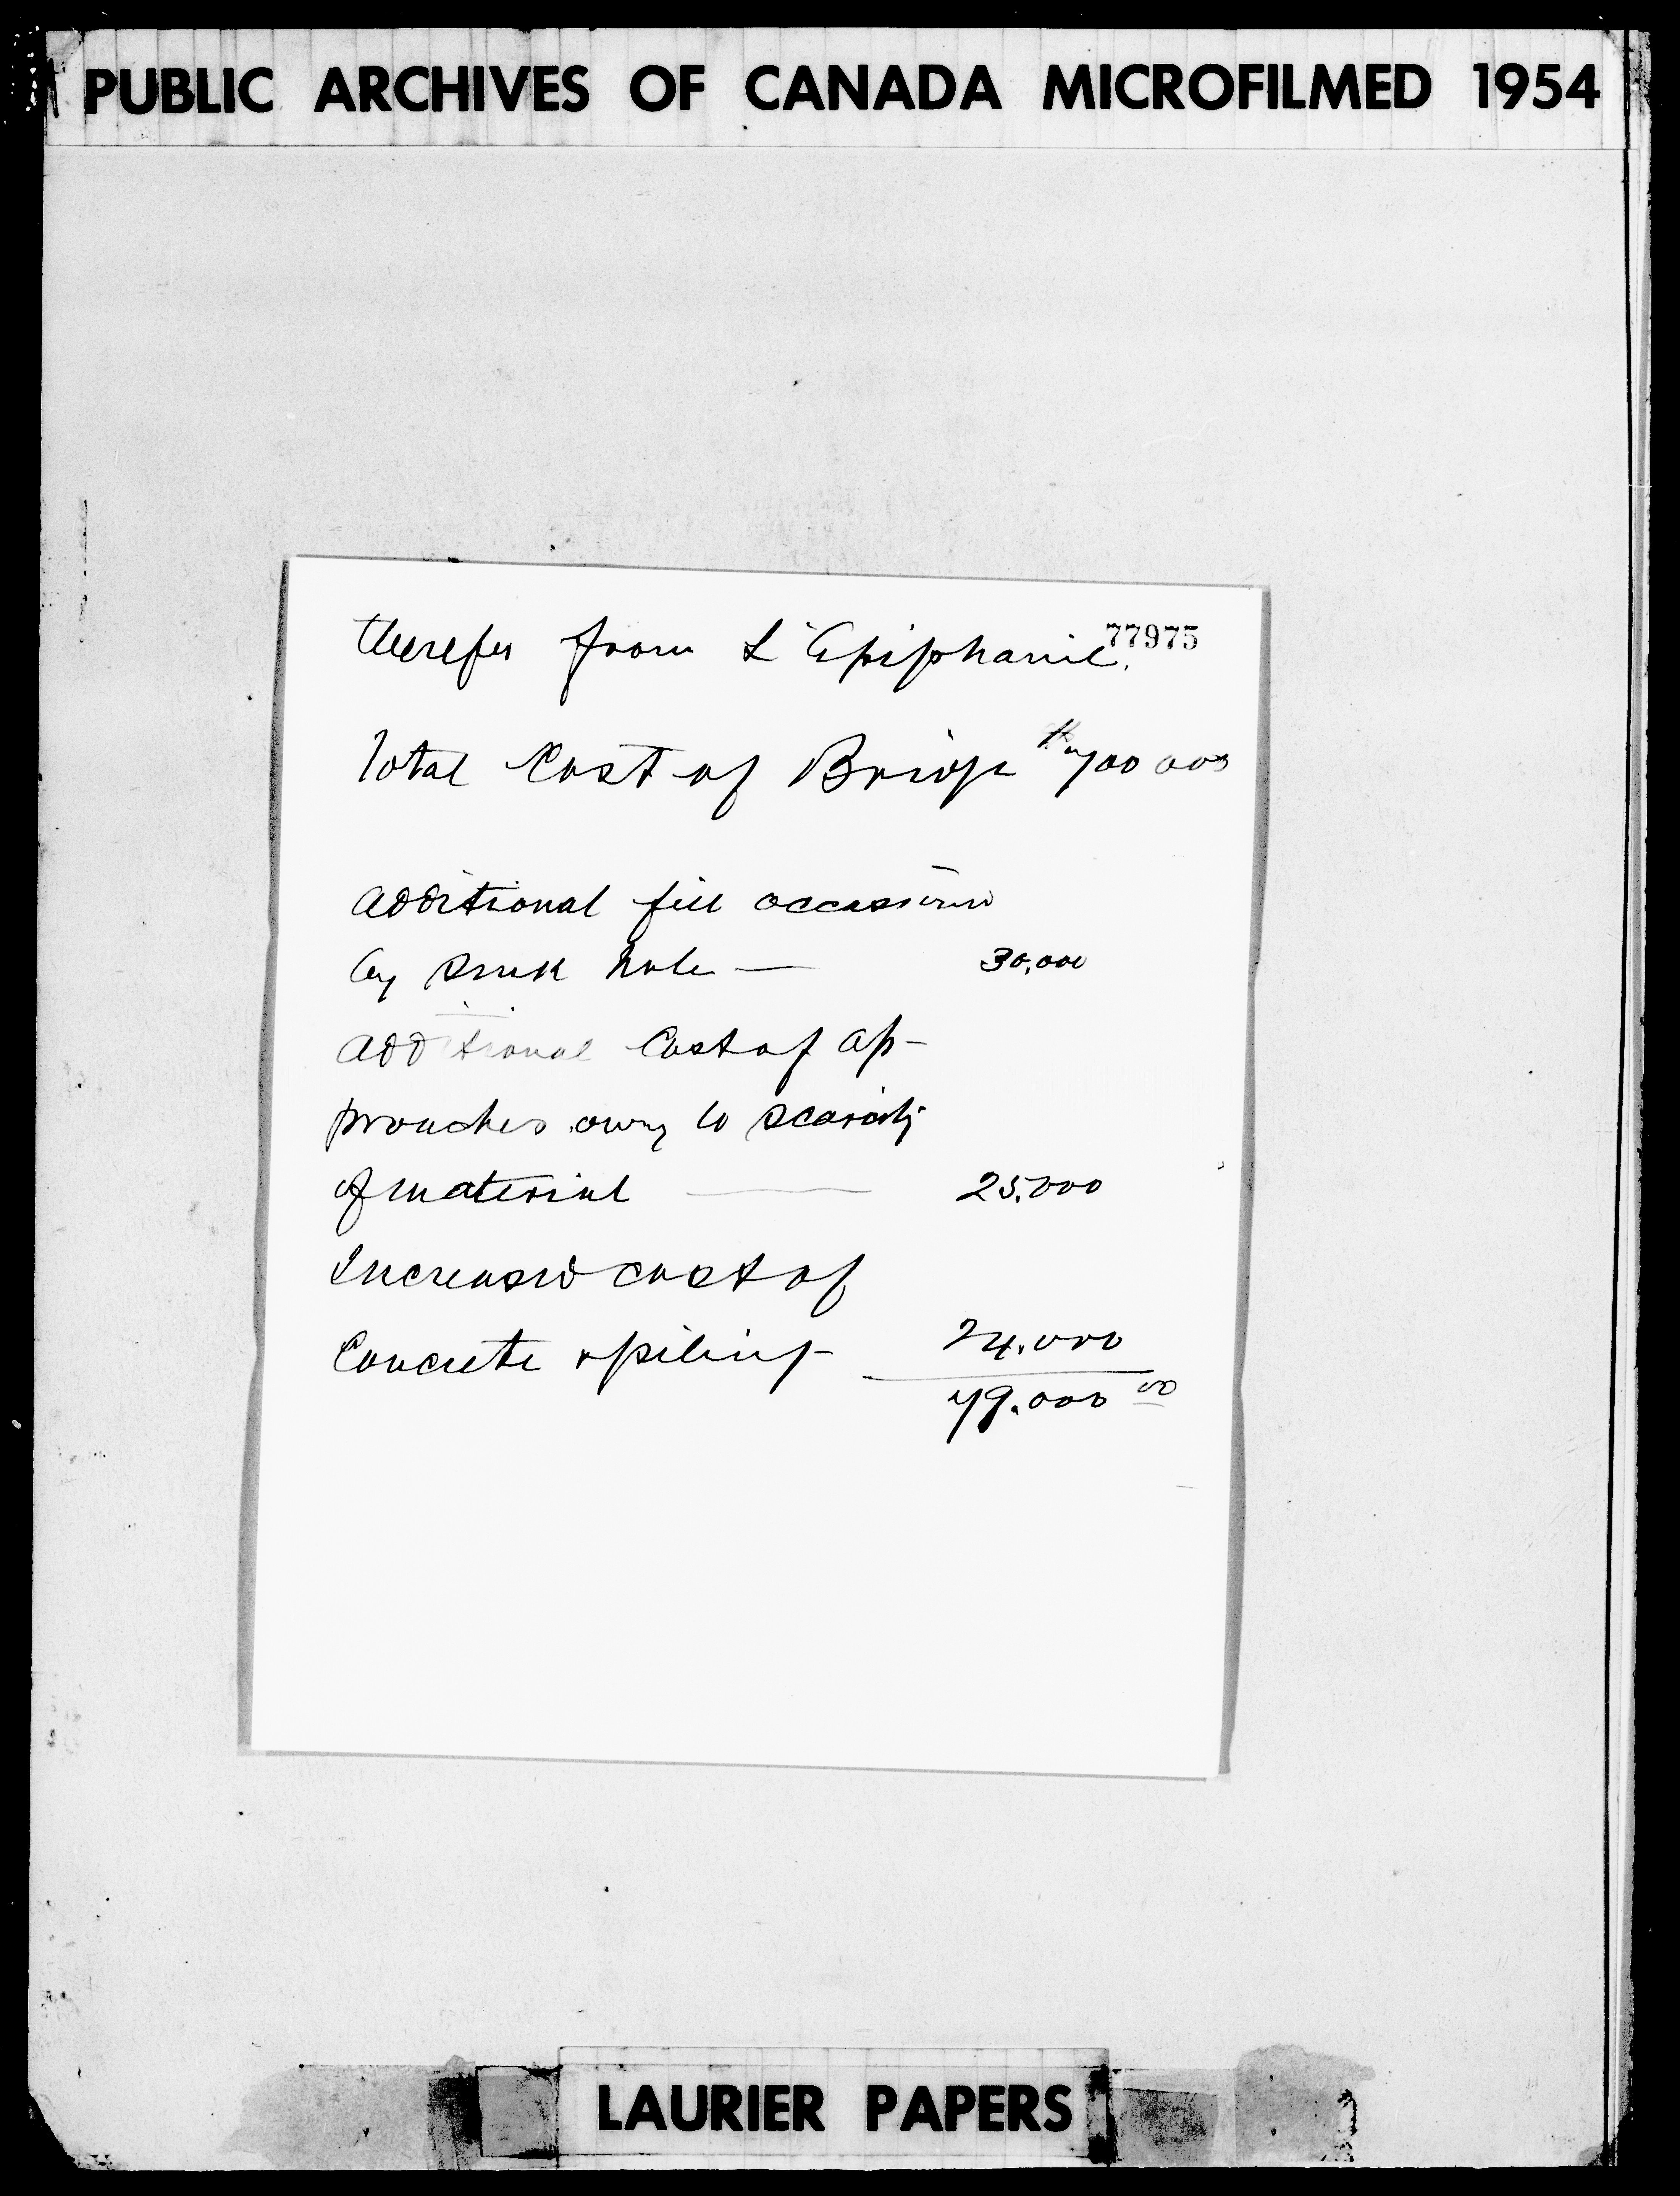 PUBLIC ARCHIVES OF CANADA MICROFILMED 1954
77975
therefor from L'Epiphanie.
Total Cost of Bridge 700 000
Additional fill occasioned
by sink hole — 30,000
Additional Cost of ap-
proaches owing to scarcity
of material — 25,000
Increased cost of
Concrete & piling - 24,000
79,000 00
LAURIER PAPERS